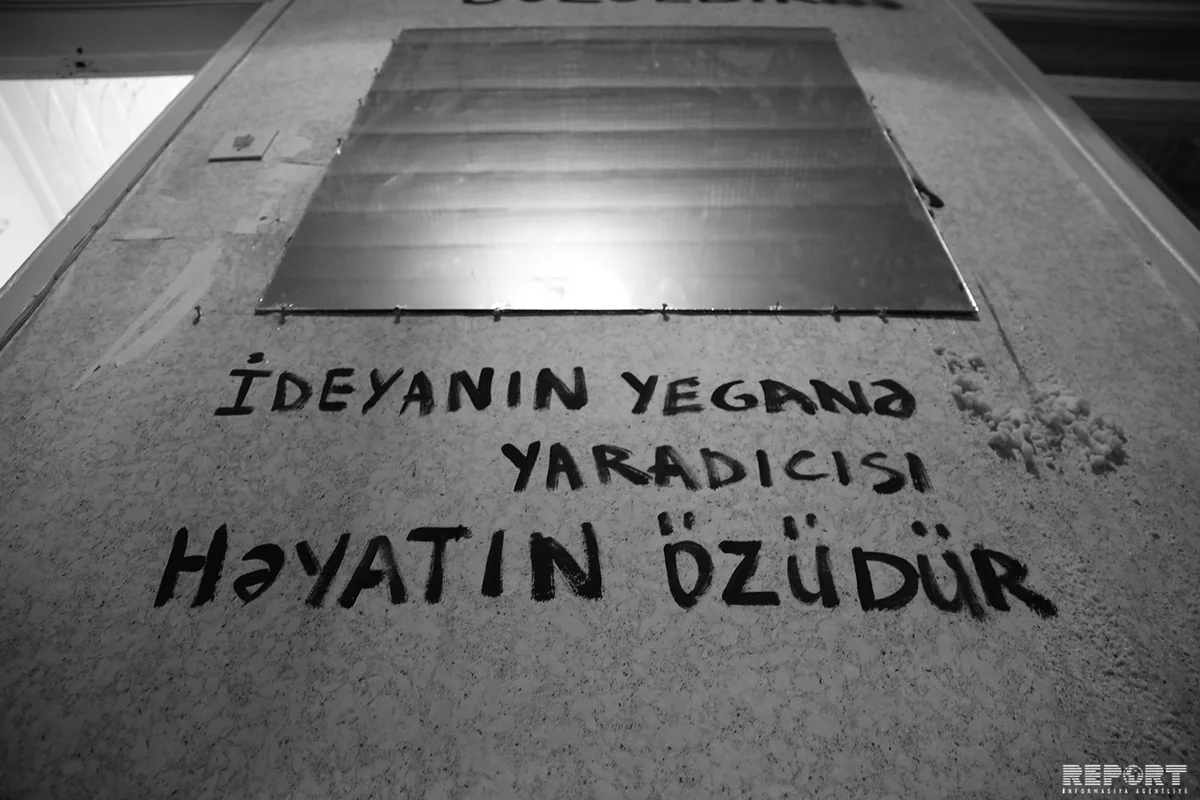 İDEYANIN YEGANƏ
YARADICISI
HƏYATIN ÖZÜDÜR
REPORT
İNFORMASİYA AGENTLİYİ